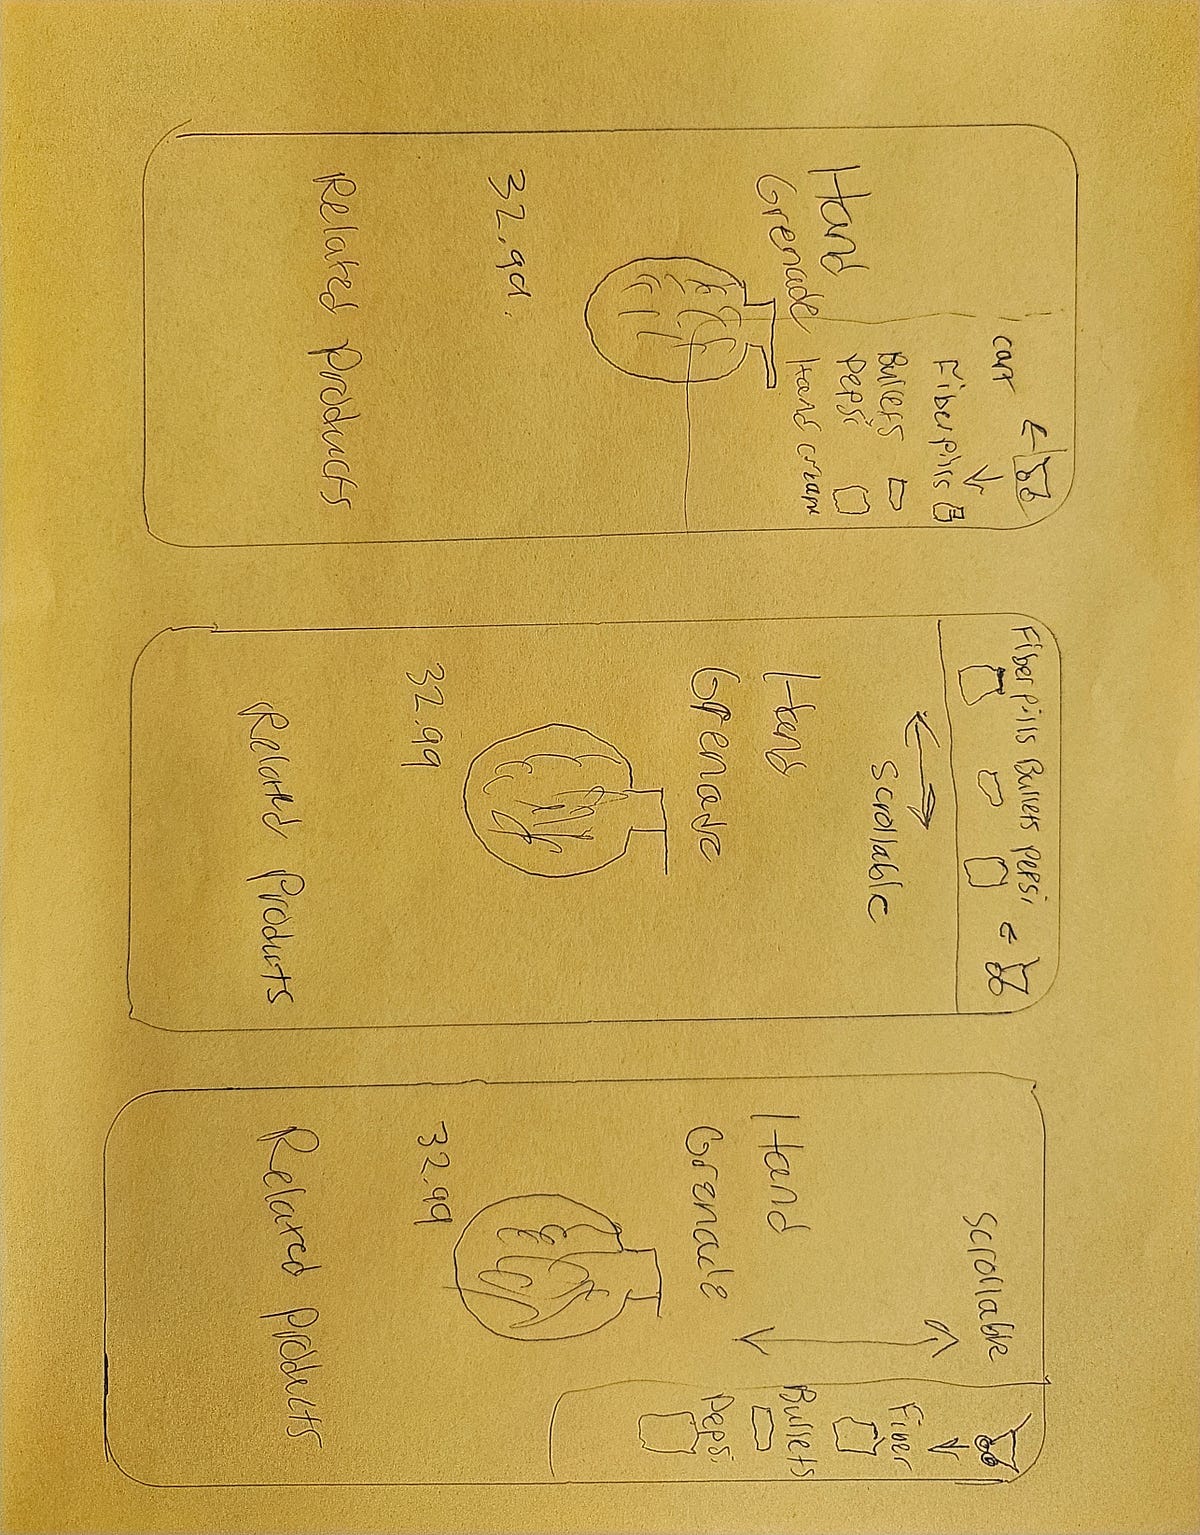 cart
Fiber pills
Bullets
Pepsi
Hand cream
Hand
Grenade
32.99.
Related Products
Fiber pills Bullets Pepsi
scrollable
Hand
Grenade
32.99
Related Products
scrollable
Fiber
Bullets
Pepsi
Hand
Grenade
32.99
Related Products